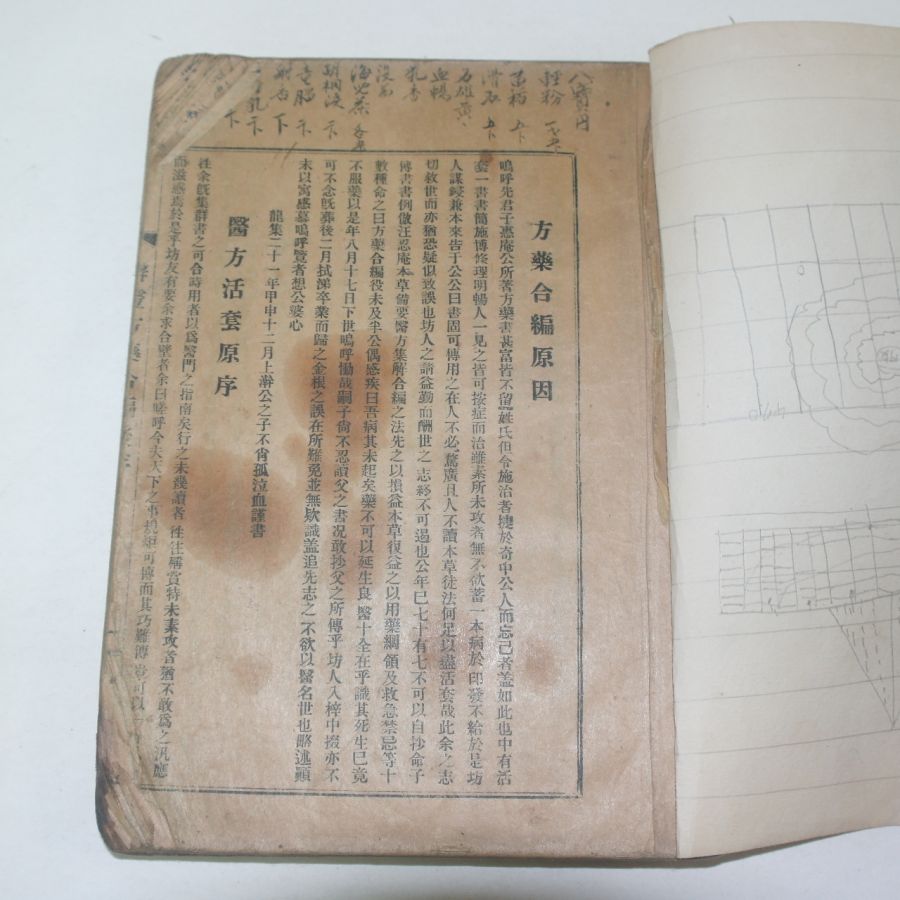 八寶丹
輕粉
滑石
石雄黃
血竭
乳香
沒藥
海兒茶
龍腦 下
射香 下
方藥合編原因
嗚呼先君子惠庵公所著方藥書甚富皆不留姓氏但令施治者捷於奇中公人而忘己者盖如此也中有活
套一書書簡施博修理明暢人一見之皆可按症而治雖素所未攻者無不欲蓄一本病於印發不給於是坊
人謀鋟兼本來告于公公曰書固可傳用之在人不必騖廣且人不讀本草徒法何足以盡活套哉此余之志
切救世而亦猶恐疑似致誤也坊人之請益勤而酬世之志終不可遏也公年已七十有七不可以自抄命子
傳書書例倣汪忍庵本草備要醫方集解合編之法先之以損益本草復益之以用藥綱領及救急禁忌等十
數種命之曰方藥合編役未及半公偶感疾曰吾病其未起矣藥不可以延生良醫十全在乎識其死生已竟
不服藥以是年八月十七日下世嗚呼慟哉嗣子尙不忍讀父之書況敢抄父之所傳乎坊人入梓中掇亦不
可不念旣葬後二月拭涕卒業而歸之金根之誤在所難免並無欵識盖追先志之不欲以醫名世也略述顚
末以寓感慕嗚呼覽者想公婆心
龍集二十一年甲申十二月上澣公之子不肖孤泣血謹書
醫方活套原序
徃余旣集群書之可合時用者以爲醫門之指南矣行之未幾讀者徃徃稱賞特未素攻者猶不敢爲之汎應
而滋惑焉於是乎坊友有要余求合壁者余曰嗟呼今夫天下之事規矩可傳而其巧難傳